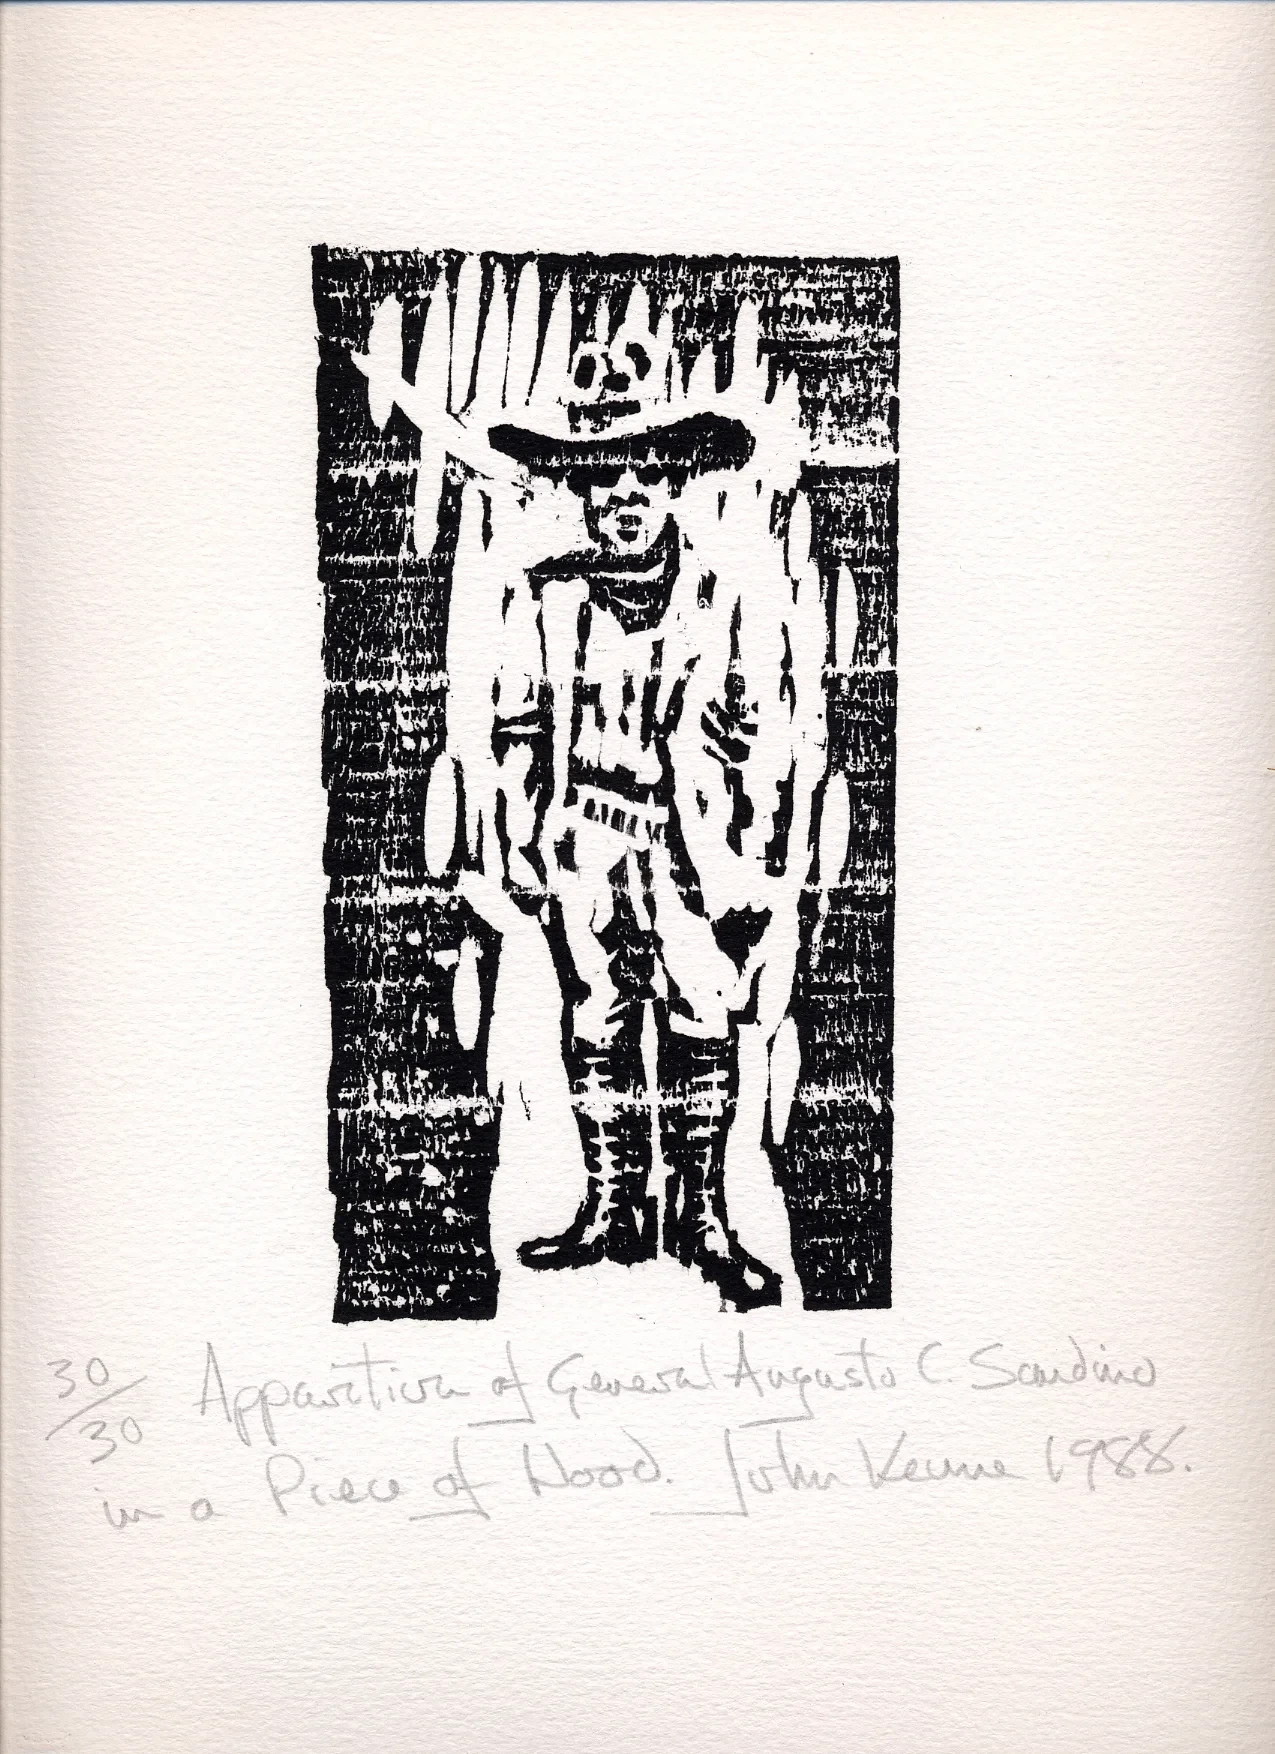 30/30 Apparition of General Augusto C. Sandino
in a Piece of Wood. John Keane 1988.